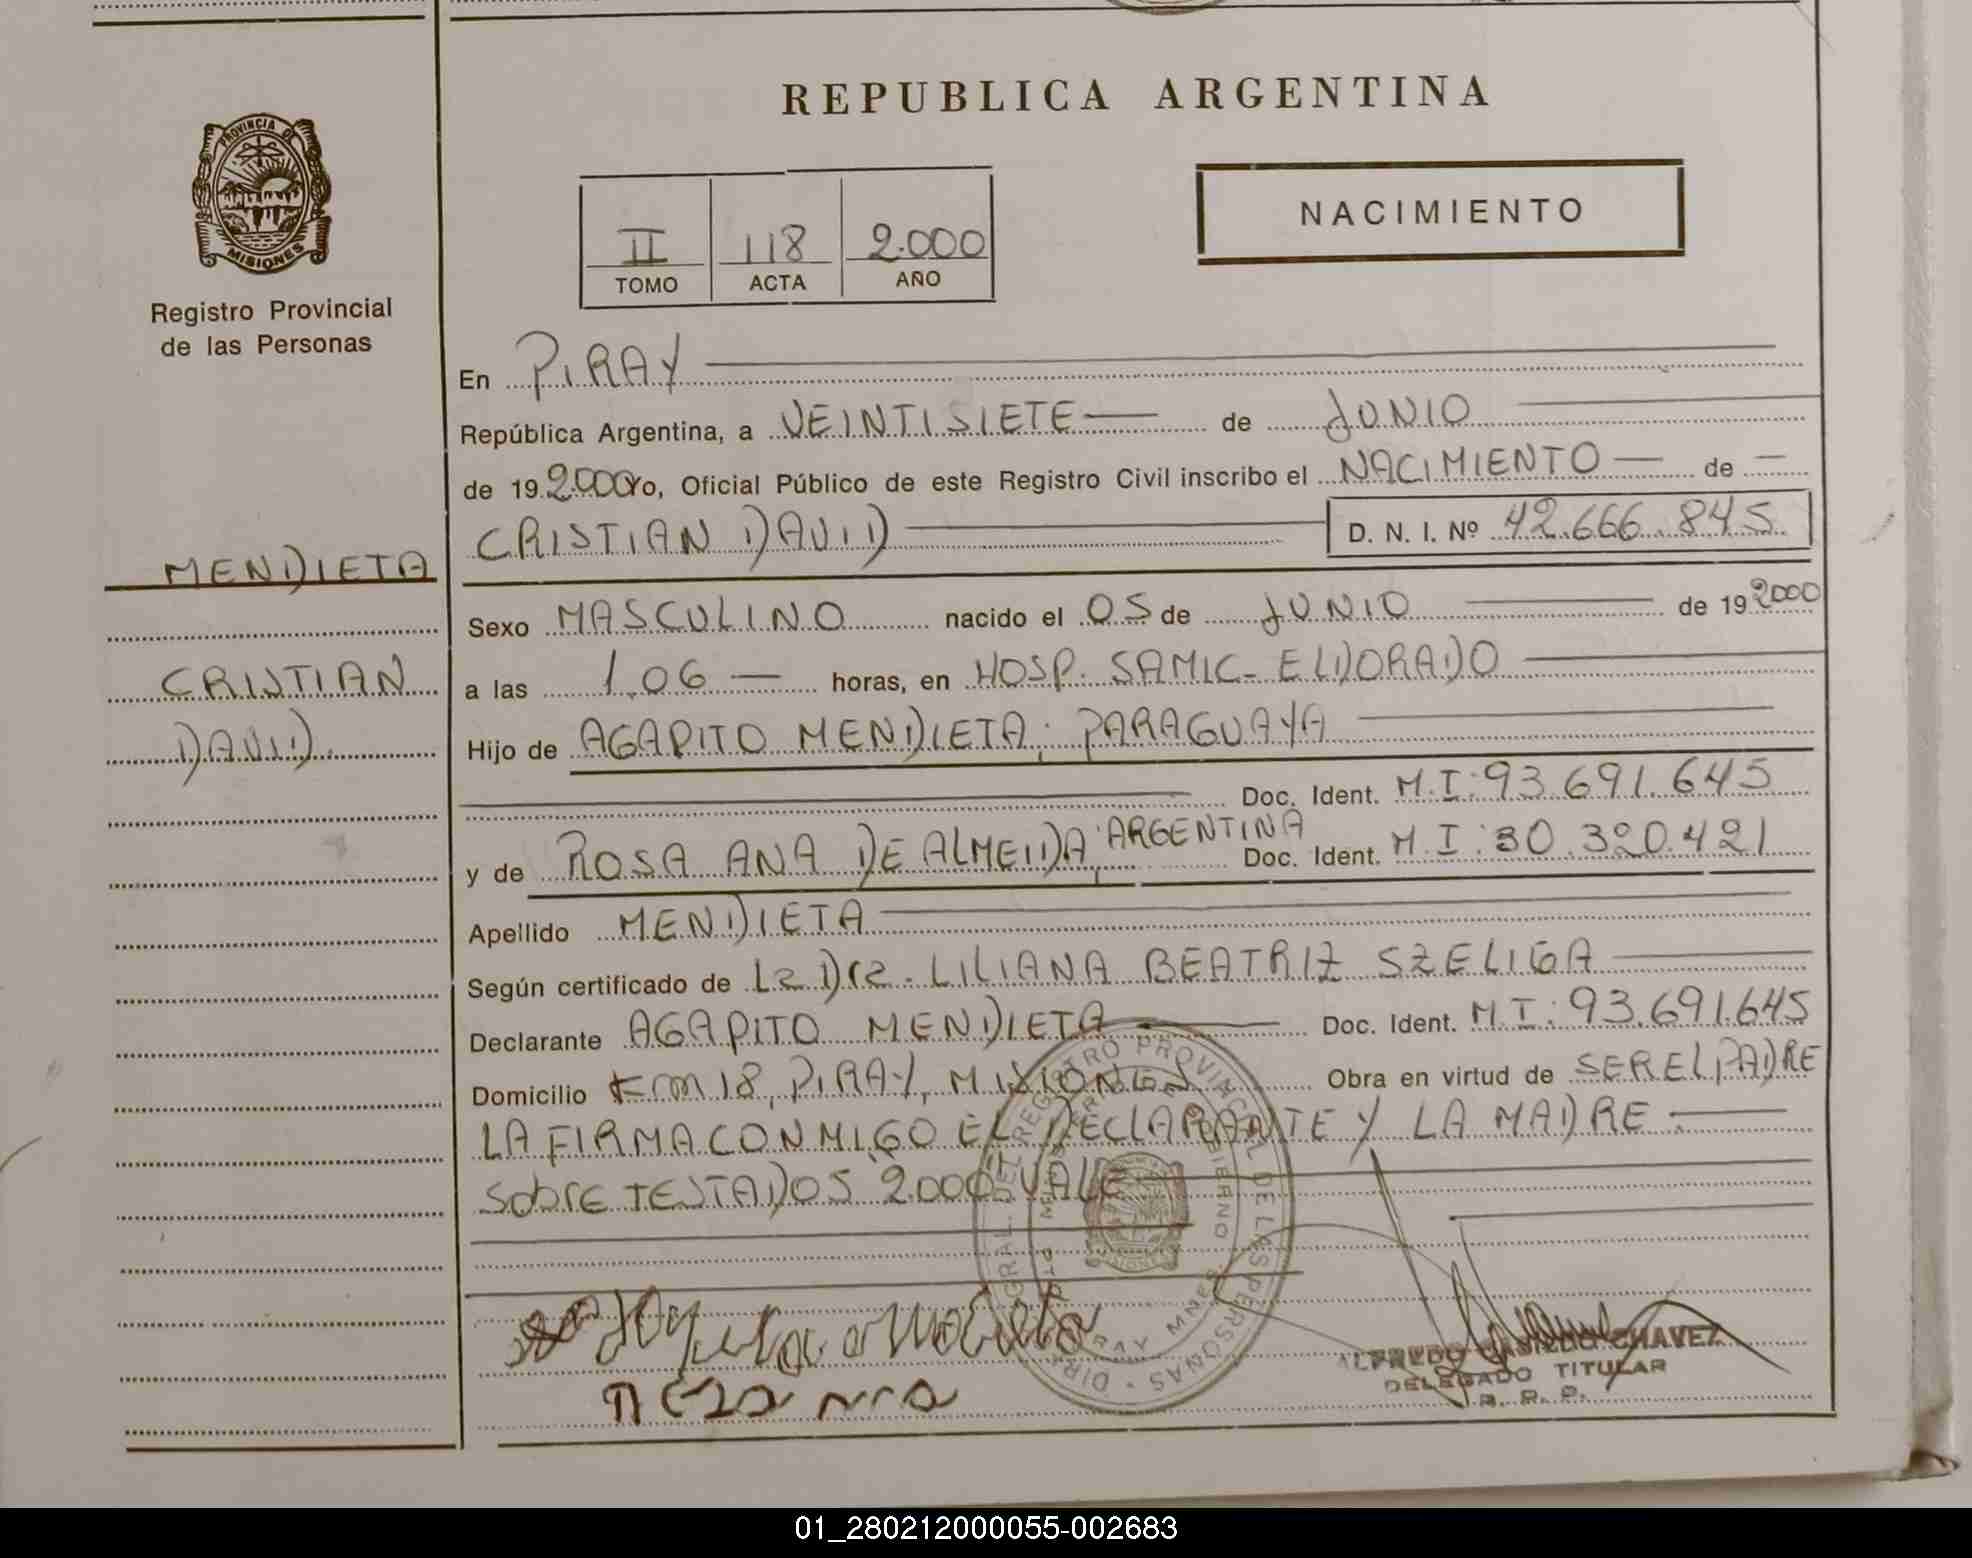 REPUBLICA ARGENTINA
PROVINCIA DE
MISIONES
Registro Provincial
de las Personas
II 118 2.000
TOMO ACTA AÑO
NACIMIENTO
En PIRAY
República Argentina, a VEINTISIETE de JUNIO
de 19 2.000 Yo, Oficial Público de este Registro Civil inscribo el NACIMIENTO — de —
CRISTIAN DAVID D. N. I. Nº 42.666.845
MENDIETA
CRISTIAN
DAVID.
Sexo MASCULINO nacido el 05 de JUNIO de 19 2000
a las 1.06 — horas, en HOSP. SAMIC - ELDORADO
Hijo de AGAPITO MENDIETA; PARAGUAYA
Doc. Ident. M.I: 93.691.645
y de ROSA ANA DE ALMEIDA; ARGENTINA Doc. Ident. M.I: 30.320.421
Apellido MENDIETA
Según certificado de La Dra. LILIANA BEATRIZ SZELIGA
Declarante AGAPITO MENDIETA Doc. Ident. M.I: 93.691.645
Domicilio Km 18, PIRAY, MISIONES Obra en virtud de SER EL PADRE
LA FIRMA CONMIGO EL DECLARANTE Y LA MADRE.
Sobre TESTADOS, 2.000 VALE
DIR. GRAL. DEL REGISTRO PROVINCIAL DE LAS PERSONAS
MISIONES
ALFREDO CASILDO CHAVEZ
DELEGADO TITULAR
R. P. P.
01_280212000055-002683